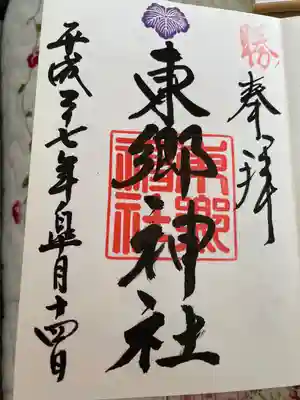 勝
奉拝
東郷神社
東郷神社
平成二十七年皐月十四日